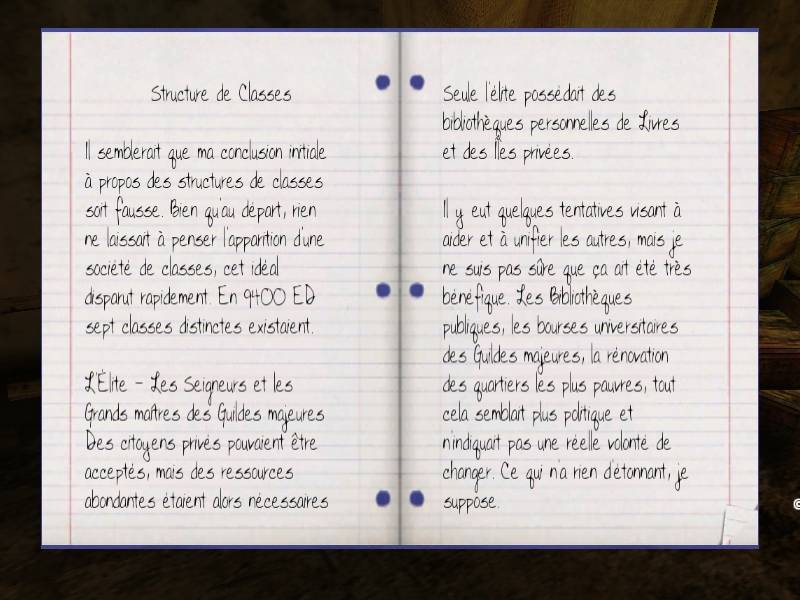 Structure de Classes
Il semblerait que ma conclusion initiale
à propos des structures de classes
soit fausse. Bien qu'au départ, rien
ne laissait à penser l'apparition d'une
société de classes, cet idéal
disparut rapidement. En 9400 ED
sept classes distinctes existaient.
L'Élite - Les Seigneurs et les
Grands maîtres des Guildes majeures
Des citoyens privés pouvaient être
acceptés, mais des ressources
abondantes étaient alors nécessaires
Seule l'élite possédait des
bibliothèques personnelles de Livres
et des Îles privées.
Il y eut quelques tentatives visant à
aider et à unifier les autres, mais je
ne suis pas sûre que ça ait été très
bénéfique. Les Bibliothèques
publiques, les bourses universitaires
des Guildes majeures, la rénovation
des quartiers les plus pauvres, tout
cela semblait plus politique et
n'indiquait pas une réelle volonté de
changer. Ce qui n'a rien d'étonnant, je
suppose.